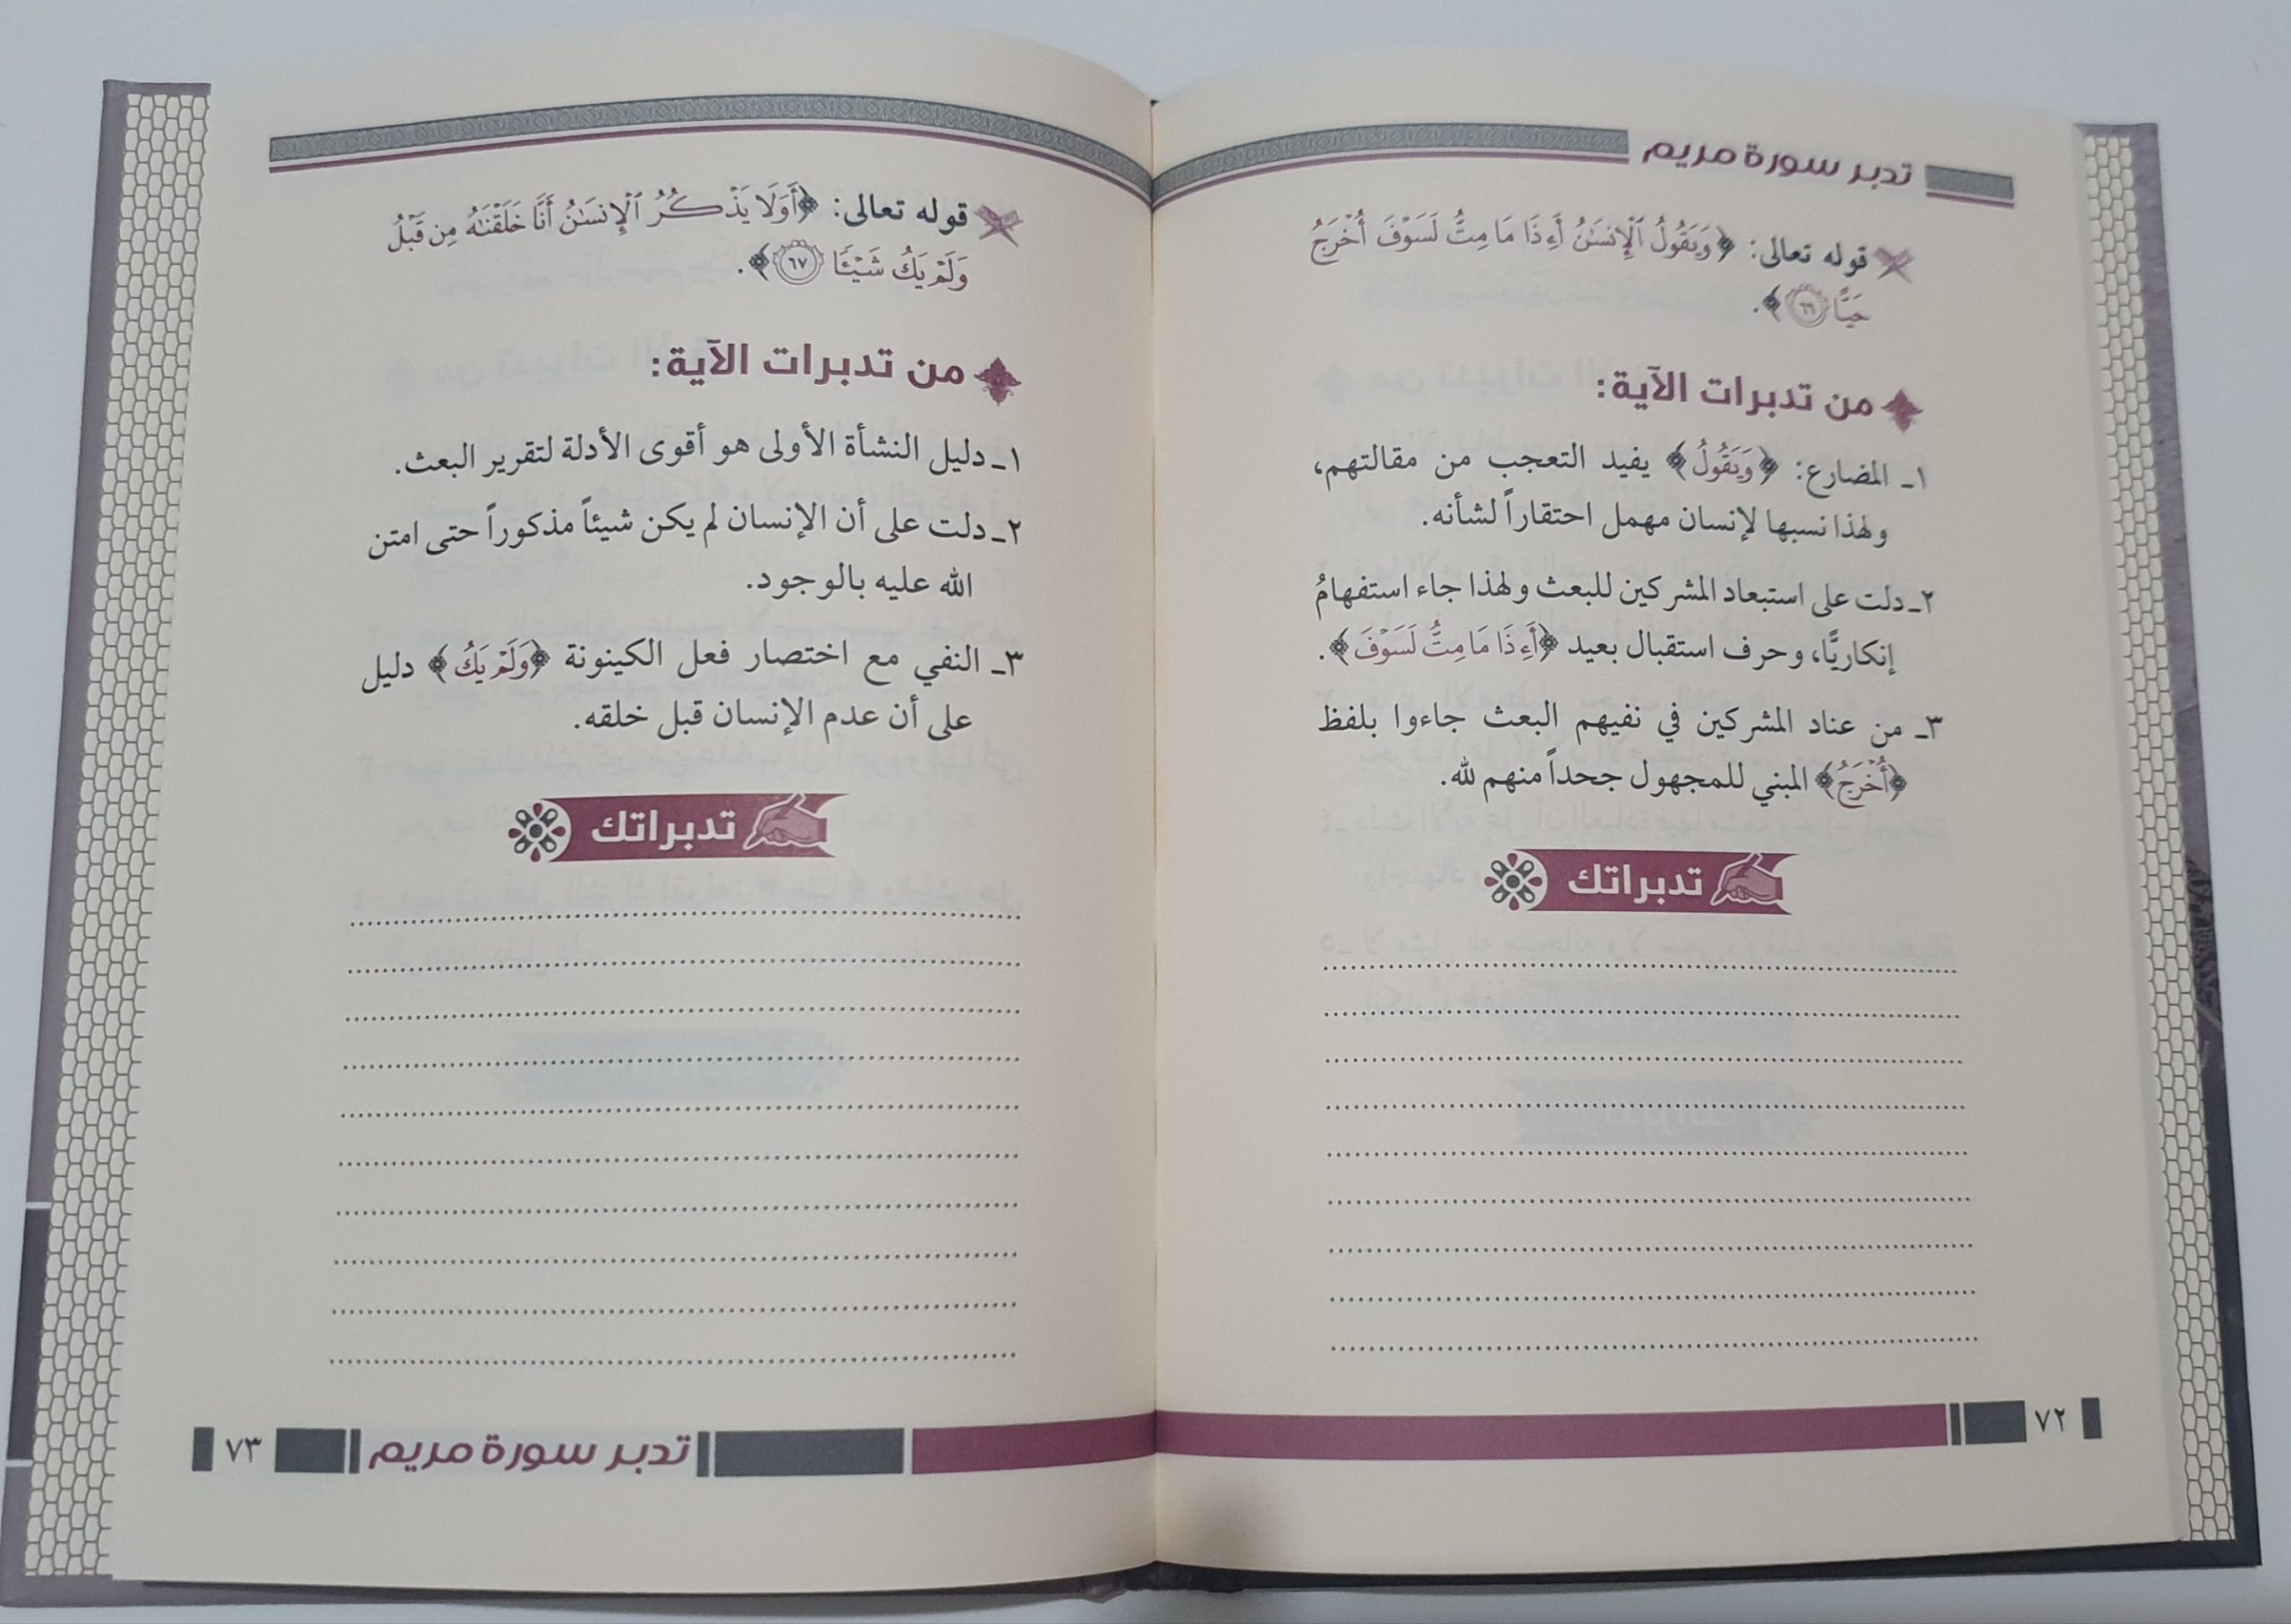 تدبر سورة مريم
قوله تعالى: ﴿وَيَقُولُ ٱلْإِنسَٰنُ أَءِذَا مَا مِتُّ لَسَوْفَ أُخْرَجُ
حَيًّا ٦٦﴾.
من تدبرات الآية:
١ـ المضارع: ﴿وَيَقُولُ﴾ يفيد التعجب من مقالتهم،
ولهذا نسبها لإنسان مهمل احتقاراً لشأنه.
٢ـ دلت على استبعاد المشركين للبعث ولهذا جاء استفهامُ
إنكاريًّا، وحرف استقبال بعيد ﴿أَءِذَا مَا مِتُّ لَسَوْفَ﴾.
٣ـ من عناد المشركين في نفيهم البعث جاءوا بلفظ
﴿أُخْرَجُ﴾ المبني للمجهول جحداً منهم لله.
تدبراتك
٧٢
قوله تعالى: ﴿أَوَلَا يَذْكُرُ ٱلْإِنسَٰنُ أَنَّا خَلَقْنَٰهُ مِن قَبْلُ
وَلَمْ يَكُ شَيْـًٔا ٦٧﴾.
من تدبرات الآية:
١ـ دليل النشأة الأولى هو أقوى الأدلة لتقرير البعث.
٢ـ دلت على أن الإنسان لم يكن شيئاً مذكوراً حتى امتن
الله عليه بالوجود.
٣ـ النفي مع اختصار فعل الكينونة ﴿وَلَمْ يَكُ﴾ دليل
على أن عدم الإنسان قبل خلقه.
تدبراتك
تدبر سورة مريم
٧٣